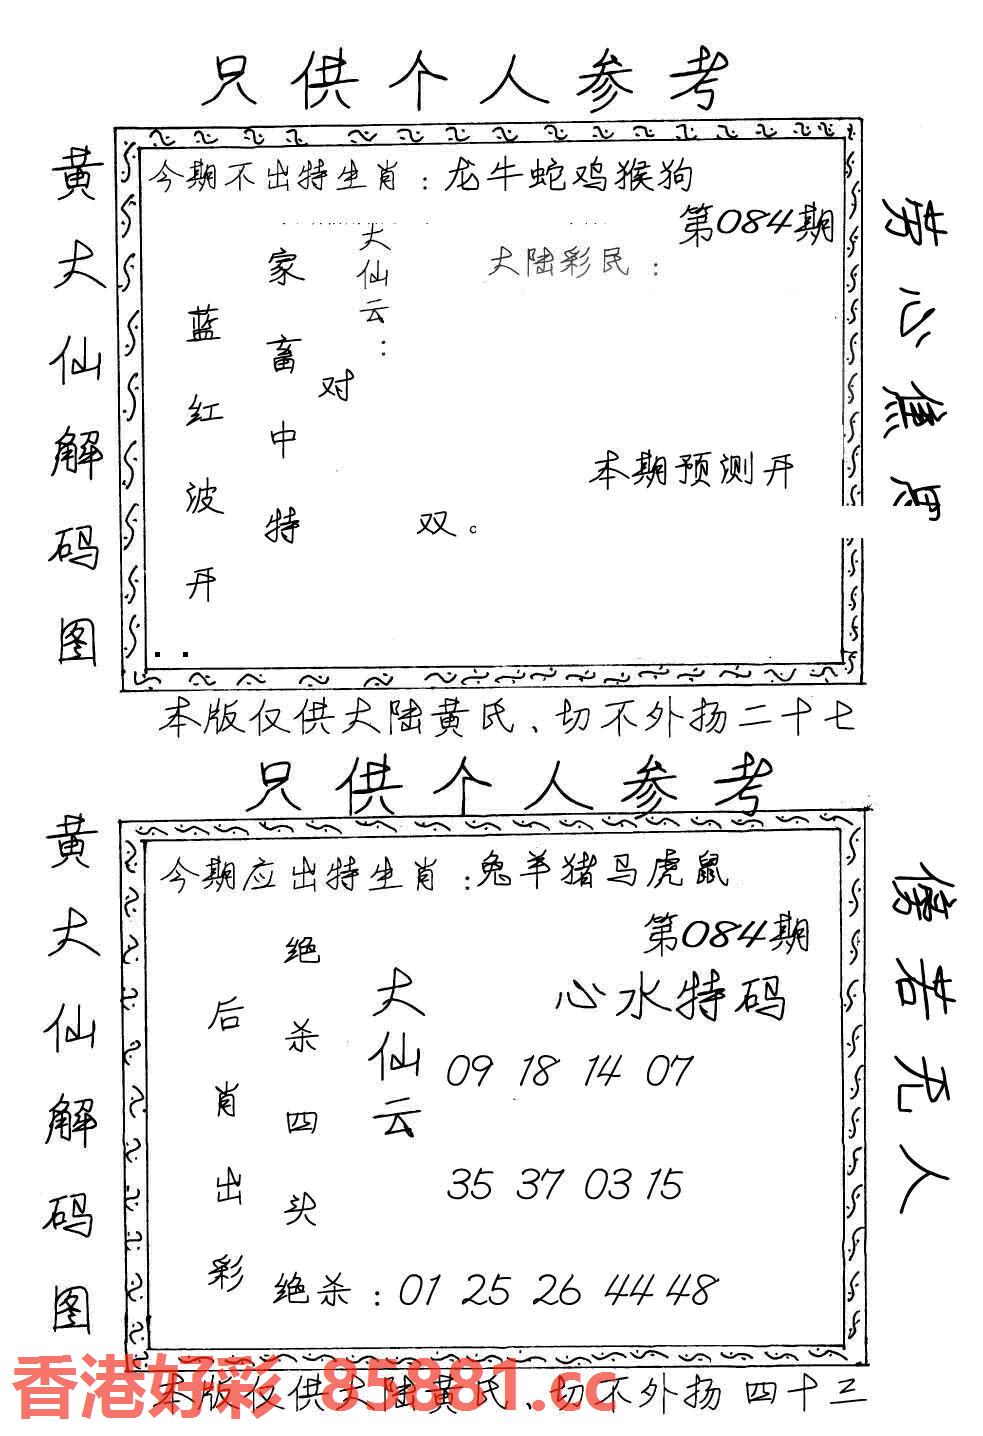 只供个人参考
黄大仙解码图
今期不出特生肖：龙牛蛇鸡猴狗
第084期
大仙云：
大陆彩民：
家畜中特
蓝红波开
对
双。
本期预测开
劳心焦思
本版仅供大陆黄氏、切不外扬二十七
只供个人参考
黄大仙解码图
今期应出特生肖：兔羊猪马虎鼠
第084期
心水特码
大仙云
绝杀四头
后肖出彩
09 18 14 07
35 37 03 15
绝杀：01 25 26 44 48
傍若无人
本版仅供大陆黄氏、切不外扬 四十三
香港好彩 85881.cc